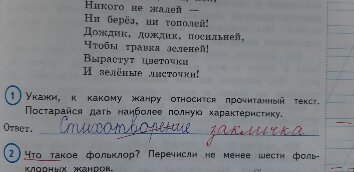 Никого не жалей —
Ни берёз, ни тополей!
Дождик, дождик, посильней,
Чтобы травка зеленей!
Вырастут цветочки
И зелёные листочки!
1 Укажи, к какому жанру относится прочитанный текст.
Постарайся дать наиболее полную характеристику.
Ответ. Стихотворение закличка
2 Что такое фольклор? Перечисли не менее шести фоль-
клорных жанров.